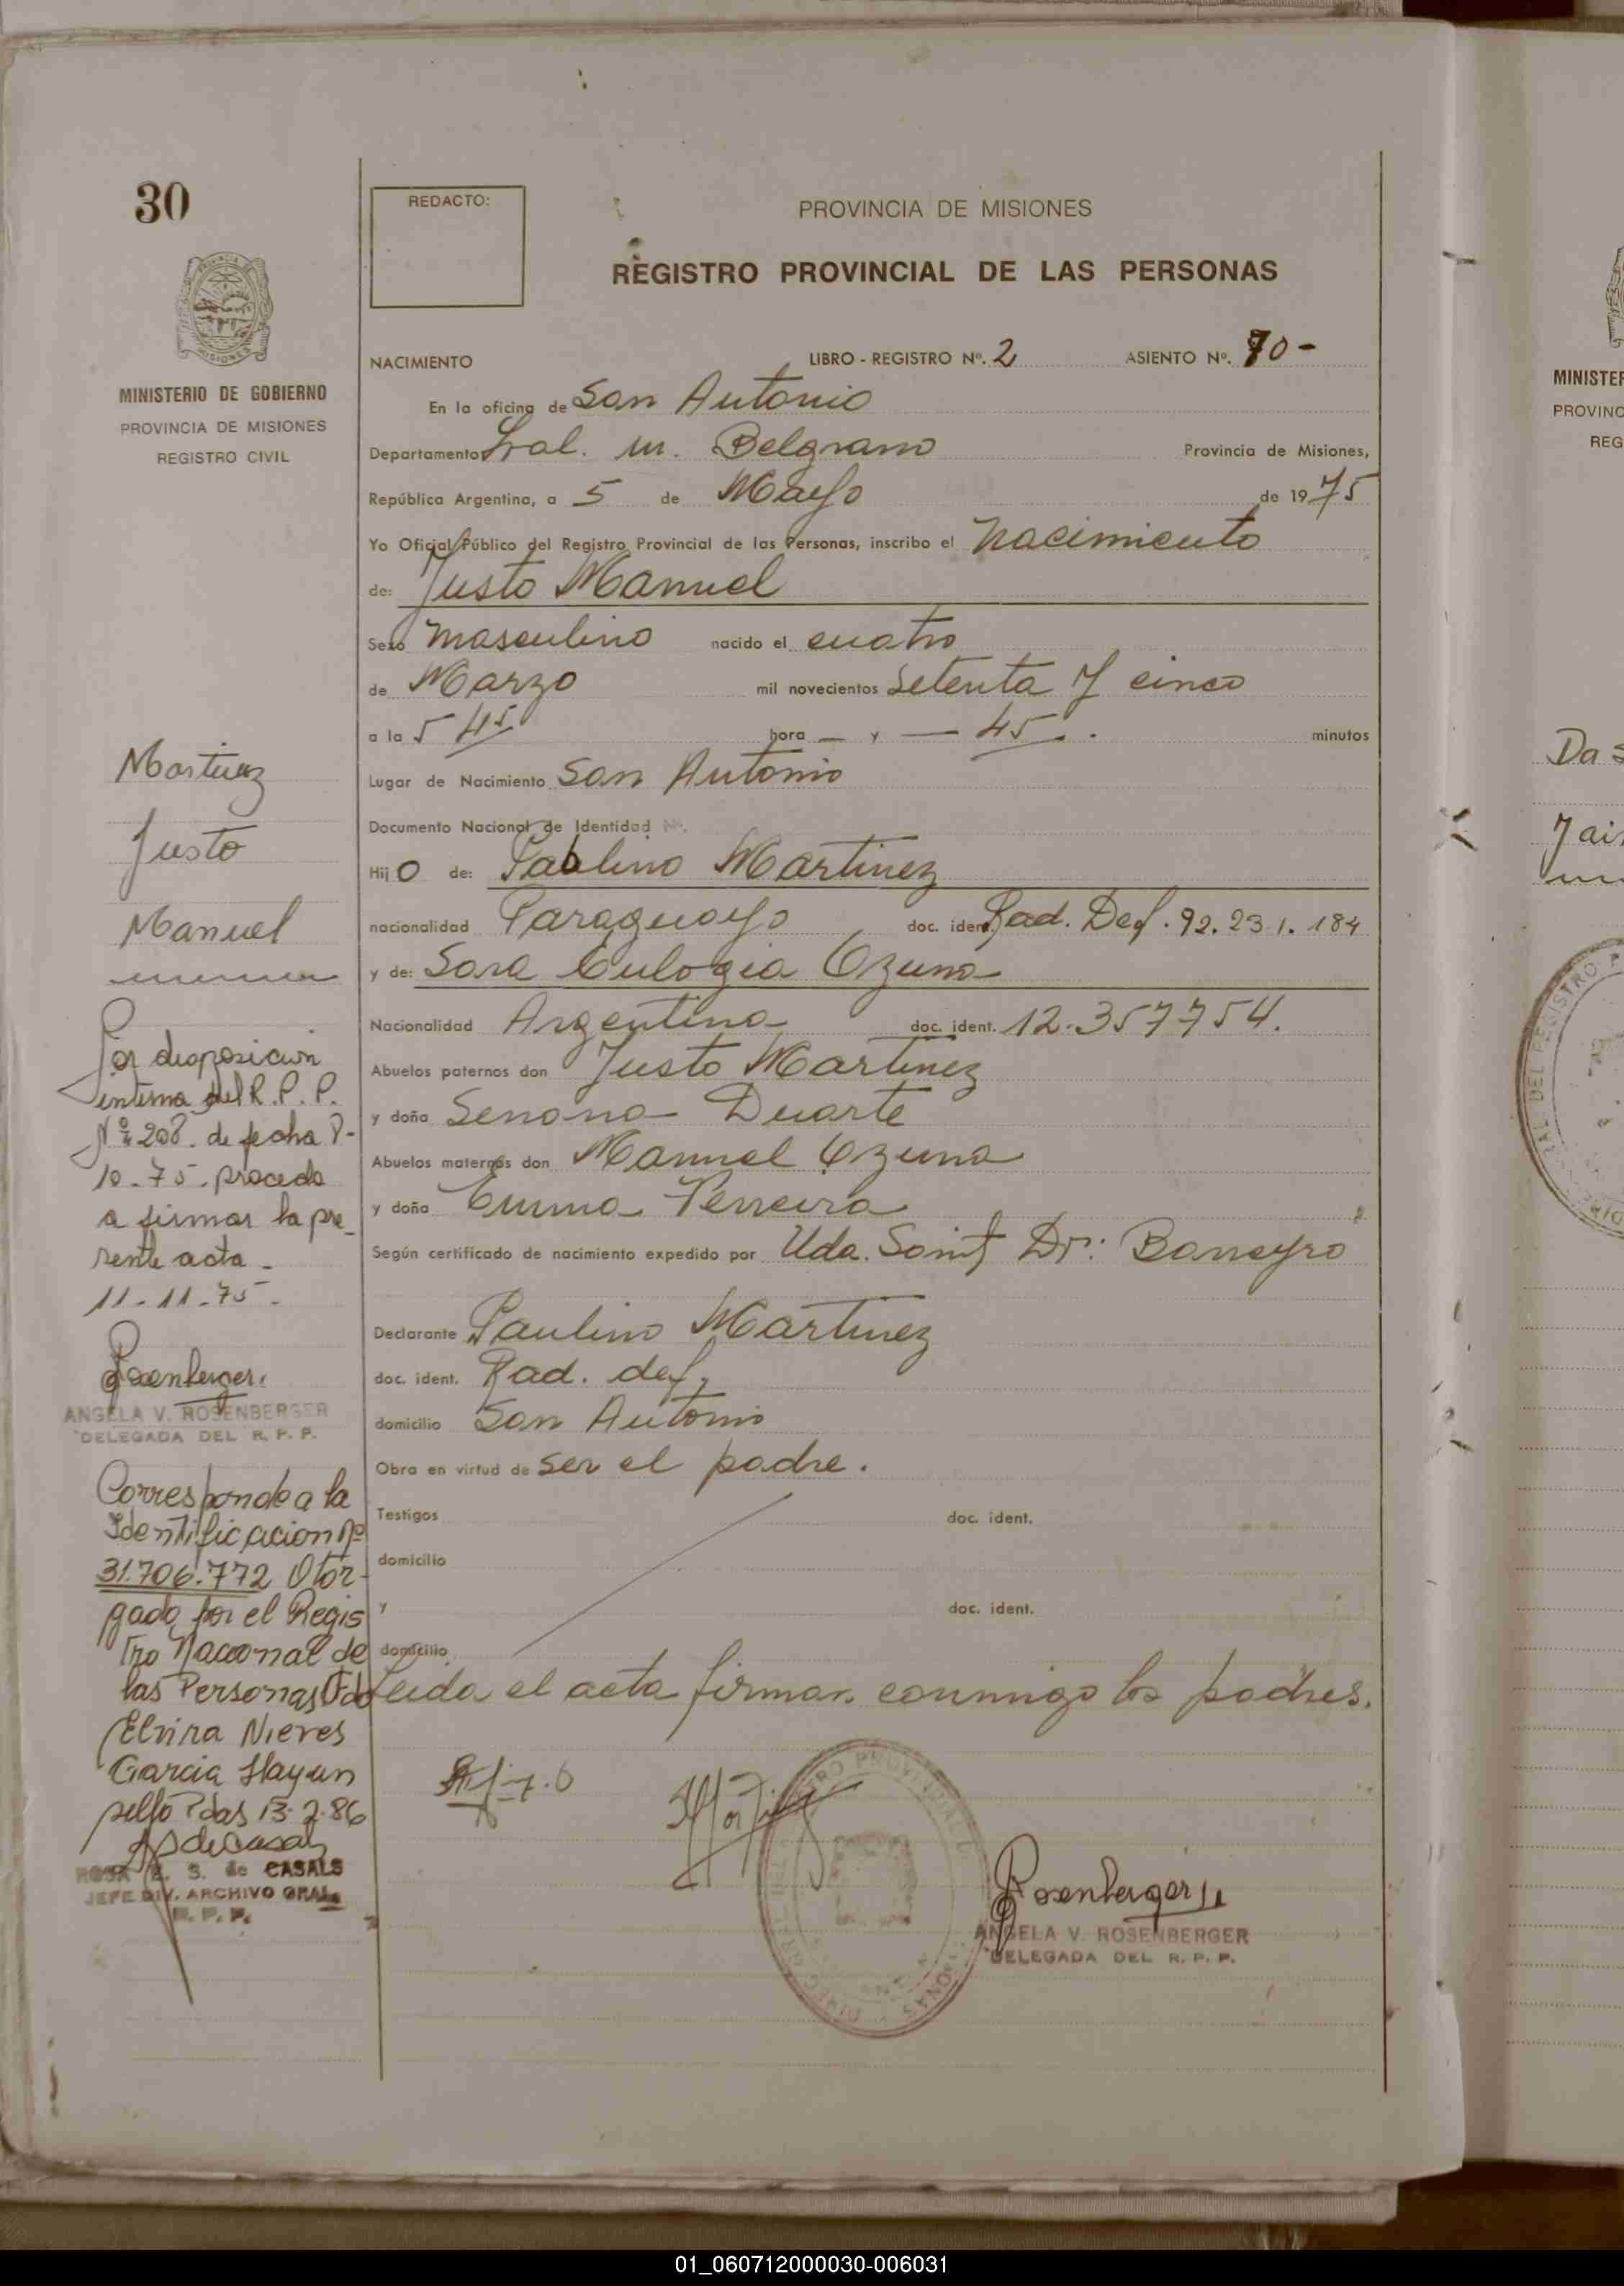 30
REDACTO:
PROVINCIA DE MISIONES
REGISTRO PROVINCIAL DE LAS PERSONAS
MINISTERIO DE GOBIERNO
PROVINCIA DE MISIONES
REGISTRO CIVIL
NACIMIENTO LIBRO - REGISTRO Nº. 2 ASIENTO Nº. 70 -
En la oficina de San Antonio
Departamento Gral. M. Belgrano Provincia de Misiones,
República Argentina, a 5 de Mayo de 1975
Yo Oficial Público del Registro Provincial de las Personas, inscribo el Nacimiento
de: Justo Manuel
Sexo masculino nacido el cuatro
de Marzo mil novecientos setenta y cinco
a la 5 45 hora — y — 45 . minutos
Lugar de Nacimiento San Antonio
Documento Nacional de Identidad Nº.
Hijo de: Paulino Martinez
nacionalidad Paraguayo doc. ident. Rad. Def. 92.231.184
y de: Sara Eulogia Ozuna
Nacionalidad Argentina doc. ident. 12.357754.
Abuelos paternos don Justo Martinez
y doña Senona Duarte
Abuelos maternos don Manuel Ozuna
y doña Emma Ferreira
Según certificado de nacimiento expedido por Uda. Sanit Dr:
Declarante Paulino Martinez
doc. ident. Rad. def.
domicilio San Antonio
Obra en virtud de ser el padre.
Testigos doc. ident.
domicilio
y doc. ident.
domicilio
Leida el acta firman conmigo los padres.
Rosenberger
ANGELA V. ROSENBERGER
DELEGADA DEL R. P. P.
Martinez
Justo
Manuel
Por disposicion
interna del R. P. P.
Nº 208. de fecha 8-
10-75. procedo
a firmar la pre_
sente acta -
11-11-75-
Rosenberger
ANGELA V. ROSENBERGER
DELEGADA DEL R. P. P.
Corresponde a la
Identificacion nº
31.706.772 Otor-
gado por el Regis
tro Nacional de
las Personas Fdo
Elvira Nieves
Garcia
sello Pdas 13-2-86
ROSA E. S. de CASALS
JEFE DIV. ARCHIVO GRAL.
R. P. P.
MINISTER
PROVINC
REG
Da S
01_060712000030-006031